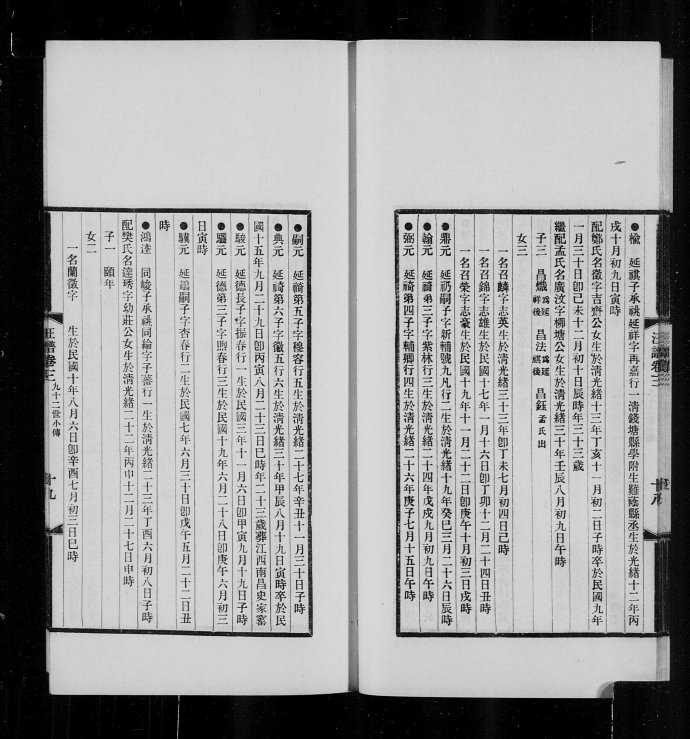 ●楡　延祺子承祧延祥字再嘉行一清錢塘縣學附生難蔭縣丞生於光緒十二年丙
戌十月初九日寅時
配鄭氏名徵字吉齊公女生於清光緒十三年丁亥十一月初二日子時卒於民國九年
一月三十日卽己未十二月初十日辰時年三十三歲
繼配孟氏名廣汶字柳塘公女生於清光緒三十年壬辰八月初九日午時
子三　昌熾爲延祥後　昌法爲延祺後　昌鈺孟氏出
女三
一名召麟字志英生於清光緒三十三年卽丁未七月初四日己時
一名召錦字志雄生於民國十七年一月十六日卽丁卯十二月二十四日丑時
一名召榮字志豪生於民國十九年十一月二十二日卽庚午十月初三日戌時
●鼎元　延礽嗣子字新輔號九凡行二生於清光緒十九年癸巳三月二十六日辰時
●翰元　延禕第三子字紫林行三生於清光緒二十四年戊戌九月初九日午時
●弼元　延禕第四子字輔卿行四生於清光緒二十六年庚子七月十五日午時
汪譜卷三
十八
●嗣元　延禕第五子字穆容行五生於清光緒二十七年辛丑十一月三十日子時
●典元　延禕第六子字徽五行六生於清光緒三十年甲辰八月十九日寅時卒於民
國十五年九月二十九日卽丙寅八月二十三日巳時年二十三歲葬江西南昌史家窰
●駿元　延德長子字振春行一生於民國三年十一月六日卽甲寅九月十九日子時
●驪元　延德第三子字煦春行三生於民國十九年六月二十八日卽庚午六月初三
日寅時
●驥元　延鴻嗣子字杏春行二生於民國七年六月三十日卽戊午五月二十二日丑
時
●鴻逵　同峻子承祧同綸字子蕃行一生於清光緒二十三年丁酉六月初八日子時
配樊氏名逵琇字幼莊公女生於清光緒二十二年丙申十二月二十七日申時
子一　頤年
女二
一名蘭徵字　　生於民國十年八月六日卽辛酉七月初三日巳時
汪譜卷三
九十二世小傳
十九